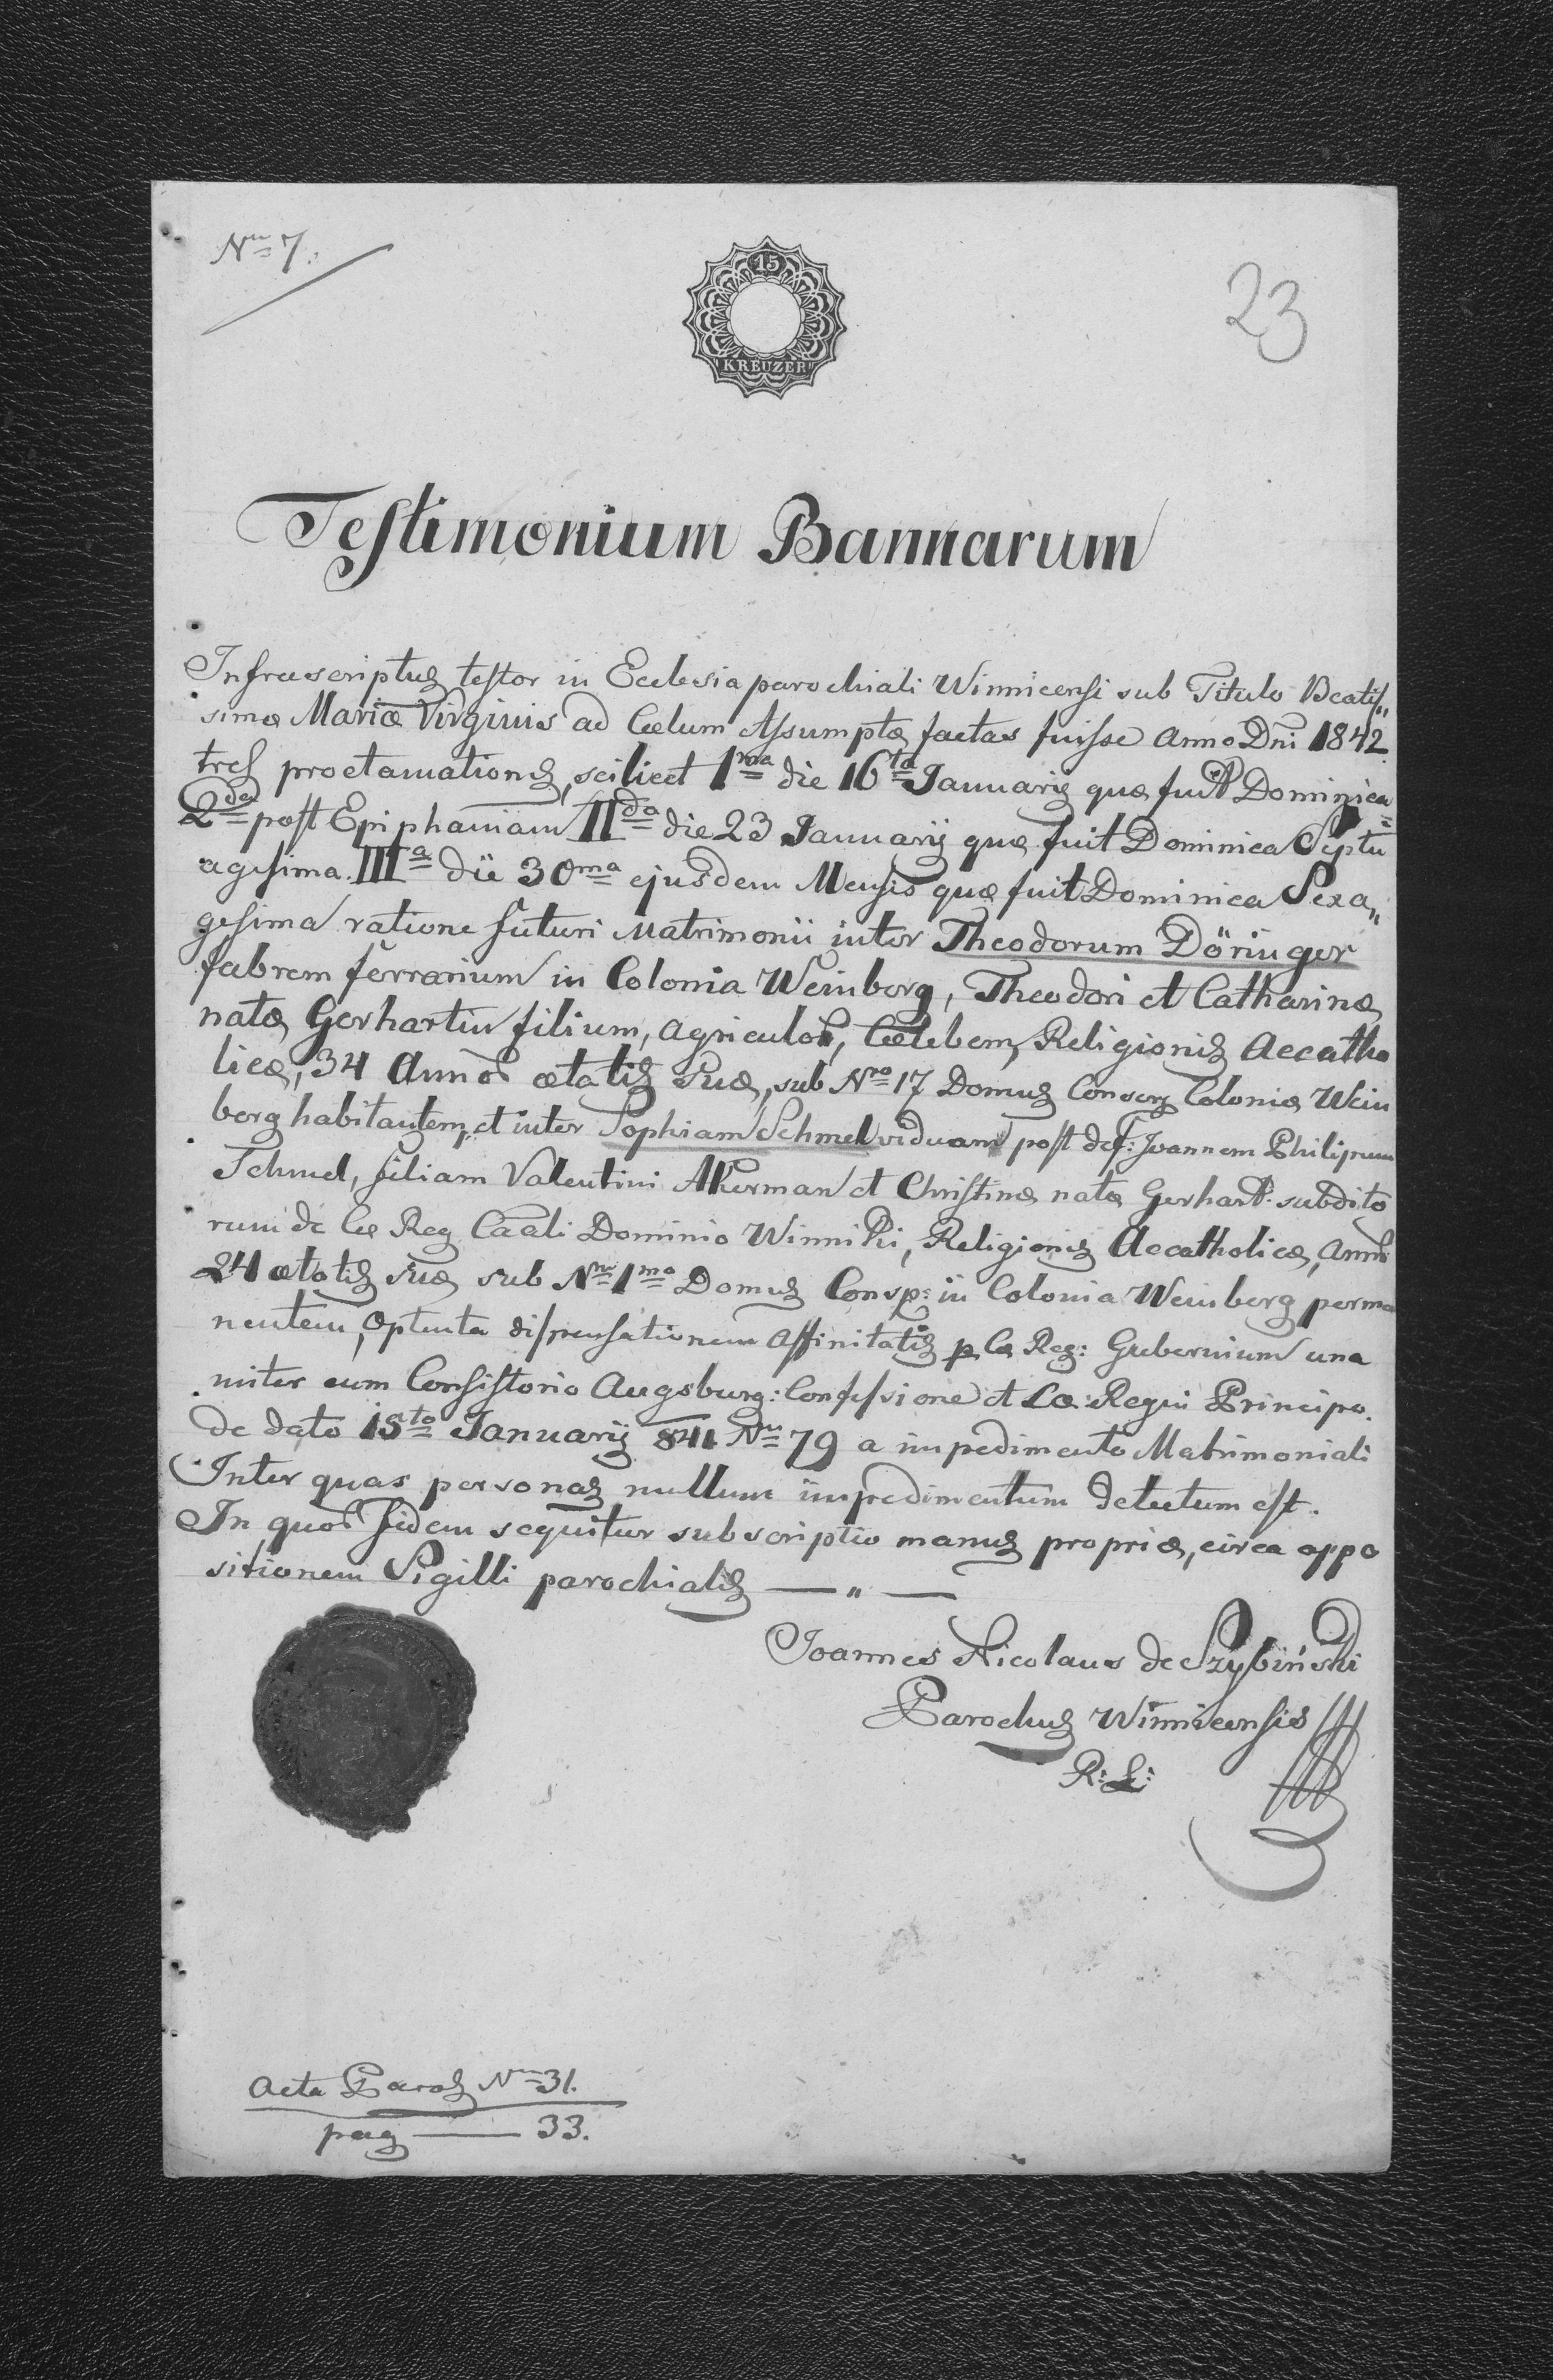 Nru 7.
23
15
KREUZER
Testimonium Bannarum
Infrascriptus testor in Ecclesia parochiali Winnicensi sub Titulo Beatis„
simæ Mariæ Virginis ad Cœlum Assumptæ factas fuisse Anno Dni 1842
tres proclamationes, scilicet 1ma die 16ta Januarij quæ fuit Dominica
2da post Epiphaniam IIda die 23 Januarij quæ fuit Dominica Septu=
agesima. IIIa die 30ma ejusdem Mensis quæ fuit Dominica Sexa„
gesima ratione futuri Matrimonii inter Theodorum Döringer
fabrem ferrarium in Colonia Weinberg, Theodori et Catharinæ
natæ Gerhartin filium, agricolor, Cœlebem, Religionis Accatho
licæ, 34 Annor ætatis suæ, sub Nro 17 Domus Conscr Coloniæ Wein
berg habitantem, et inter Sophiam Schmel viduam post def: Joannem Philipum
Schmel, filiam Valentini Akerman et Christinæ natæ Gerhart. subdito
rum de Cæ Reg Caali Dominio Winniki, Religionis Accatholicæ, Annor
24 ætatis suæ sub Nro 1mo Domus Consp: in Colonia Weinberg perma
nentem, Optenta dispensationem Affinitatis p Cæ Reg: Gubernium una
niter cum Consistorio Augsburg: Confessione et Cæ: Regni Principe.
de dato 15to Januarij 841 Nru 79 a impedimento Matrimoniali
Inter quas personas nullum impedimentum detectum est.
In quor fidem sequitur subscriptio manus propriæ, circa appo
sitionem Sigilli parochialis — „ —
Joannes Nicolaus de Szybiński
Parochus Winnicensis
R: L:
Acta Paroch Nru 31.
pag — 33.